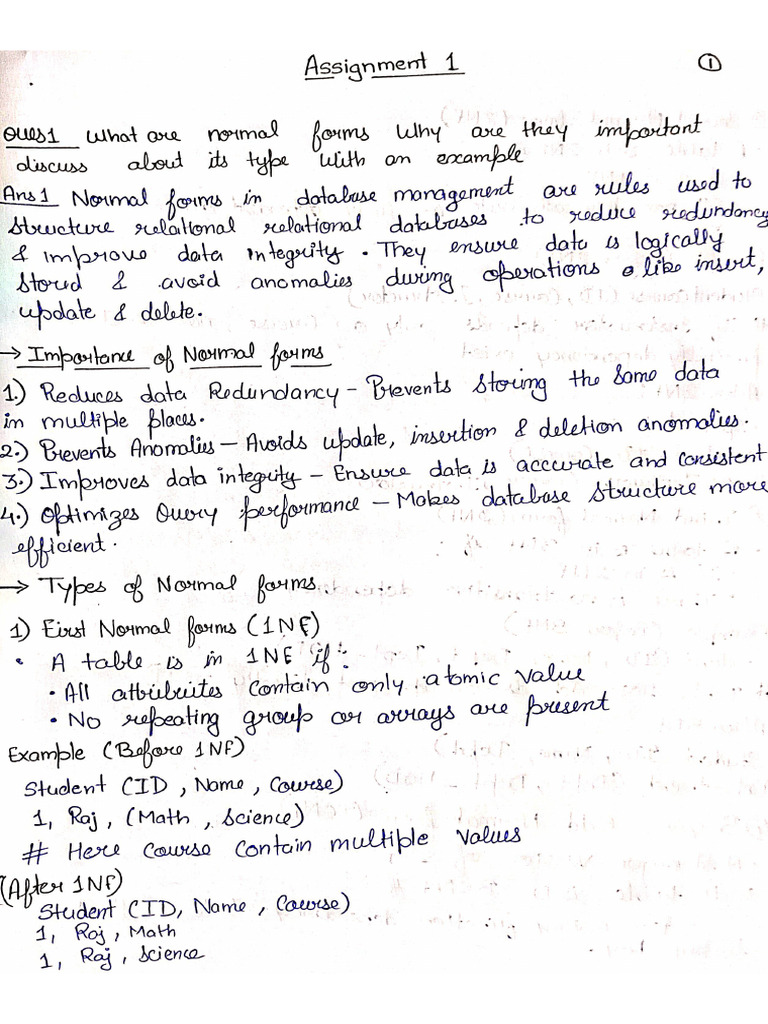 Assignment 1
1
Ques1 What are normal forms Why are they important
discuss about its type with an example
Ans1 Normal forms in database management are rules used to
structure relational relational databases to reduce redundancy
& improve data integrity. They ensure data is logically
stored & avoid anomalies during operations like insert,
update & delete.
→ Importance of Normal forms
1.) Reduces data Redundancy – Prevents storing the same data
in multiple places.
2.) Prevents Anomalies – Avoids update, insertion & deletion anomalies.
3.) Improves data integrity – Ensure data is accurate and consistent
4.) Optimizes Query performance – Makes database structure more
efficient.
→ Types of Normal forms
1) First Normal forms (1NF)
• A table is in 1NF if:
• All attributes contain only atomic value
• No repeating group or arrays are present
Example (Before 1NF)
Student (ID, Name, Course)
1, Raj, (Math, Science)
# Here course contain multiple values
(After 1NF)
Student (ID, Name, Course)
1, Raj, Math
1, Raj, Science